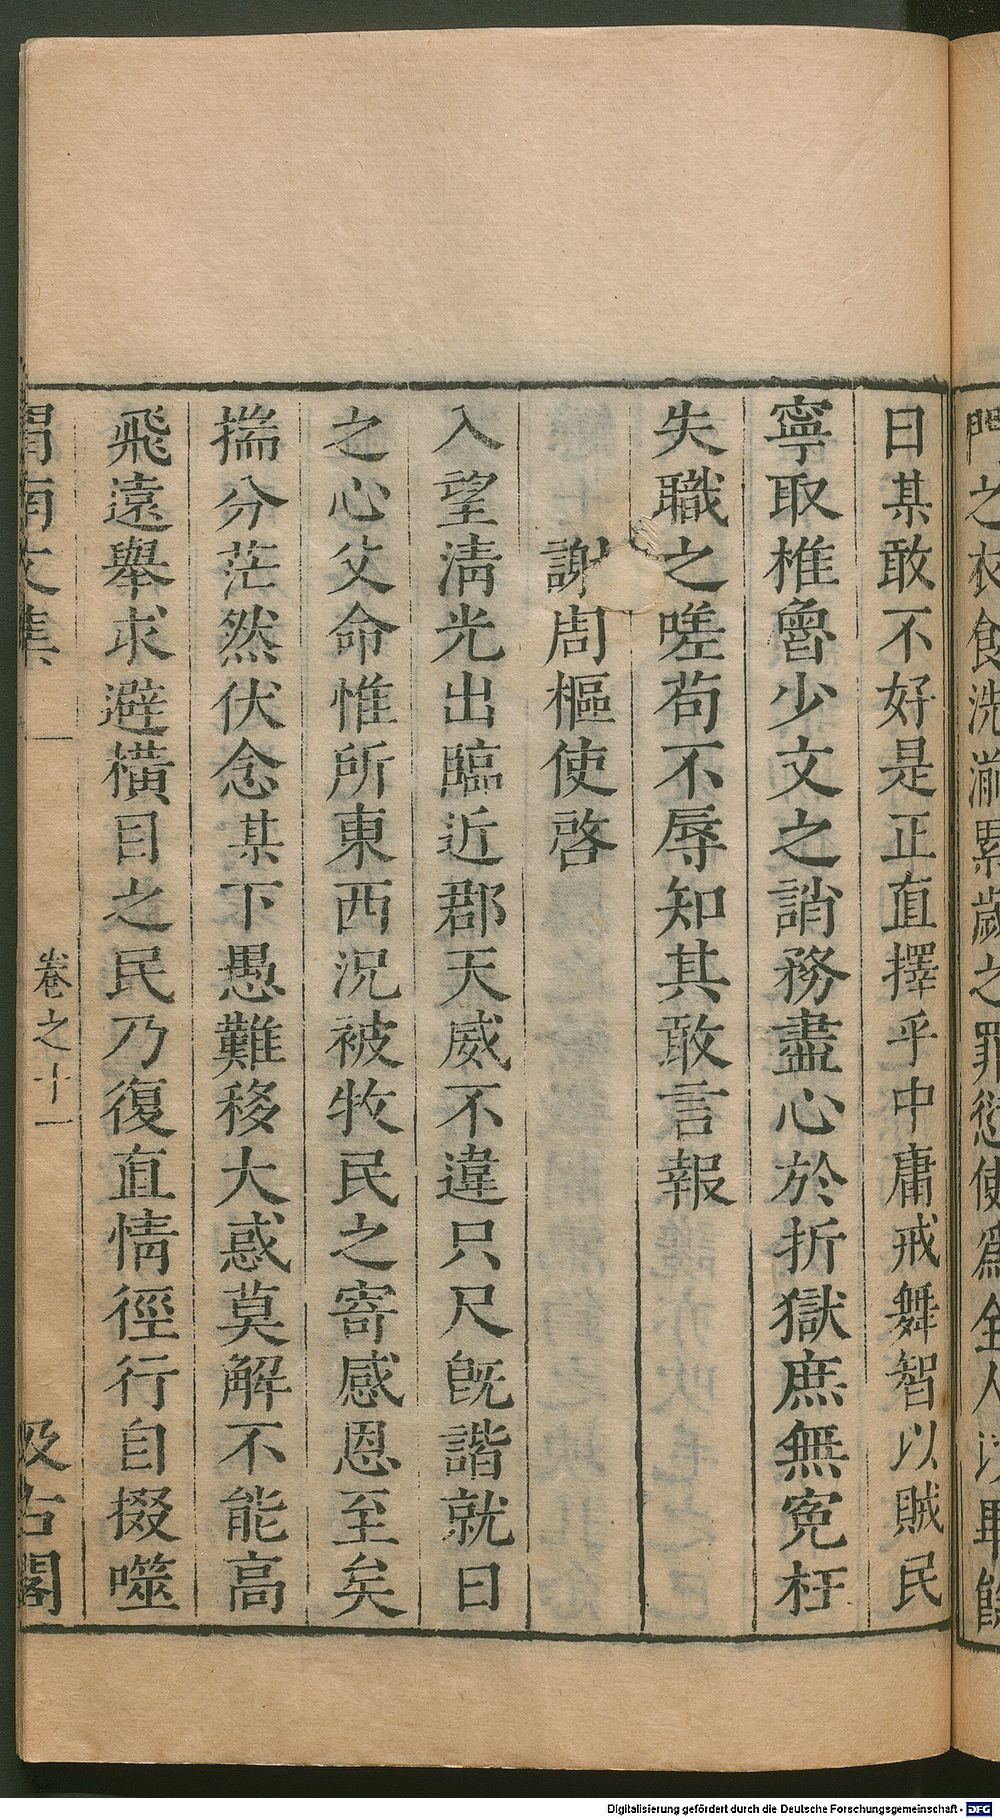 門之衣食洗滌累歲之罪愆使爲全人以畢餘
曰某敢不好是正直擇乎中庸戒舞智以賊民
寧取椎魯少文之誚務盡心於折獄庶無寃枉
失職之嗟茍不辱知其敢言報
謝周樞使啓
入望淸光出臨近郡天威不違只尺旣諧就日
之心父命惟所東西況被牧民之寄感恩至矣
揣分茫然伏念某下愚難移大惑莫解不能高
飛遠舉求避橫目之民乃復直情徑行自掇噬
渭南文集 卷之十一 汲古閣
Digitalisierung gefördert durch die Deutsche Forschungsgemeinschaft - DFG